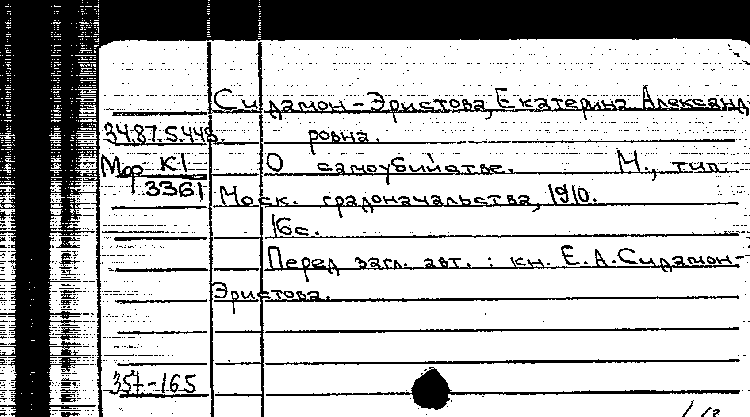 Сидамон-Эристова, Екатерина Александ
34.87.5.448. ровна.
Мор К1 О самоубийстве. М., тип.
3361 Моск. градоначальства, 1910.
16с.
Перед загл. авт.: кн. Е.А.Сидамон-
Эристова.
357-165